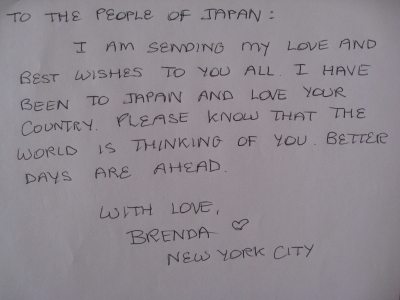 TO THE PEOPLE OF JAPAN:
I AM SENDING MY LOVE AND
BEST WISHES TO YOU ALL. I HAVE
BEEN TO JAPAN AND LOVE YOUR
COUNTRY. PLEASE KNOW THAT THE
WORLD IS THINKING OF YOU. BETTER
DAYS ARE AHEAD.
WITH LOVE,
BRENDA ♡
NEW YORK CITY